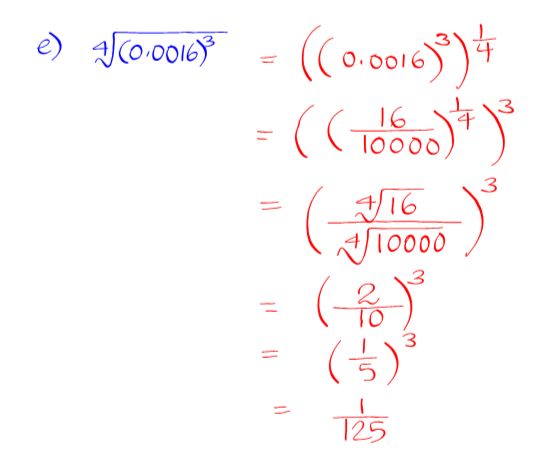 e) ∜(0.0016)³ = ((0.0016)³)^(1/4)
= ((16/10000)^(1/4))³
= (∜16/∜10000)³
= (2/10)³
= (1/5)³
= 1/125